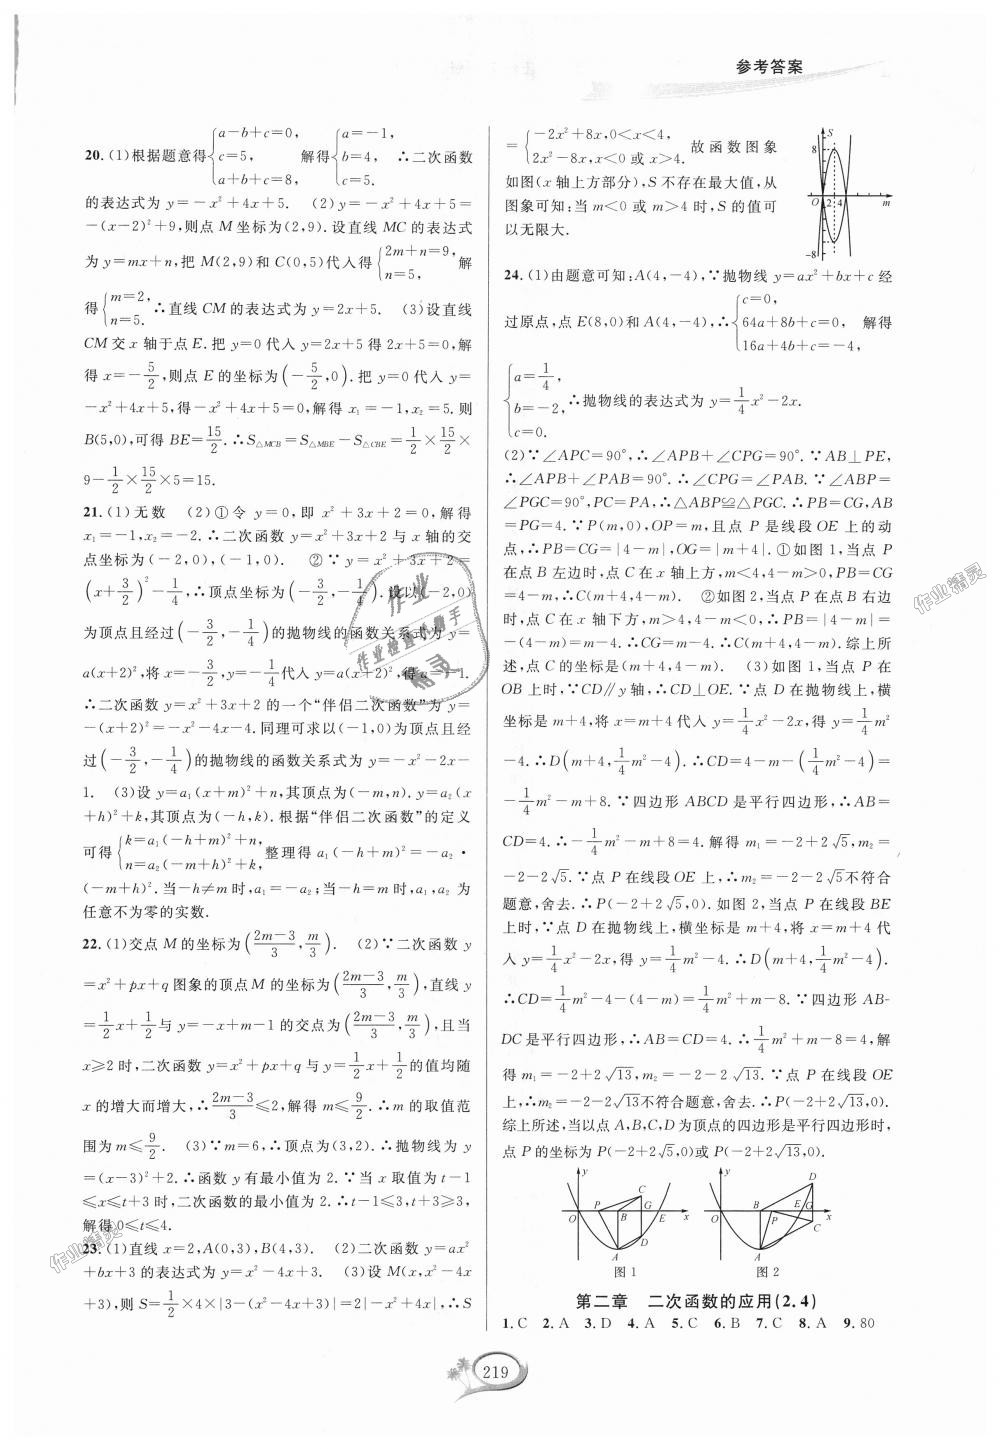 参考答案
20.(1)根据题意得{a-b+c=0, c=5, a+b+c=8, 解得{a=-1, b=4, c=5. ∴二次函数
的表达式为 y=-x²+4x+5. (2)y=-x²+4x+5=
-(x-2)²+9,则点 M 坐标为(2,9).设直线 MC 的表达式
为 y=mx+n,把 M(2,9)和 C(0,5)代入得{2m+n=9, n=5, 解
得{m=2, n=5. ∴直线 CM 的表达式为 y=2x+5. (3)设直线
CM 交 x 轴于点 E.把 y=0 代入 y=2x+5 得 2x+5=0,解
得 x=-5/2,则点 E 的坐标为(-5/2,0).把 y=0 代入 y=
-x²+4x+5,得-x²+4x+5=0,解得 x₁=-1,x₂=5.则
B(5,0),可得 BE=15/2.∴S△MCB=S△MBE-S△CBE=1/2×15/2×
9-1/2×15/2×5=15.
21.(1)无数 (2)①令 y=0,即 x²+3x+2=0,解得
x₁=-1,x₂=-2.∴二次函数 y=x²+3x+2 与 x 轴的交
点坐标为(-2,0),(-1,0). ②∵y=x²+3x+2=
(x+3/2)²-1/4,∴顶点坐标为(-3/2,-1/4).设以(-2,0)
为顶点且经过(-3/2,-1/4)的抛物线的函数关系式为 y=
a(x+2)²,将 x=-3/2,y=-1/4代入 y=a(x+2)²,得 a=-1.
∴二次函数 y=x²+3x+2 的一个“伴侣二次函数”为 y=
-(x+2)²=-x²-4x-4.同理可求以(-1,0)为顶点且经
过(-3/2,-1/4)的抛物线的函数关系式为 y=-x²-2x-
1. (3)设 y=a₁(x+m)²+n,其顶点为(-m,n).y=a₂(x
+h)²+k,其顶点为(-h,k).根据“伴侣二次函数”的定义
可得{k=a₁(-h+m)²+n, n=a₂(-m+h)²+k, 整理得 a₁(-h+m)²=-a₂·
(-m+h)².当-h≠m 时,a₁=-a₂;当-h=m 时,a₁,a₂ 为
任意不为零的实数.
22.(1)交点 M 的坐标为((2m-3)/3,m/3). (2)∵二次函数 y
=x²+px+q 图象的顶点 M 的坐标为((2m-3)/3,m/3),直线 y
=1/2x+1/2与 y=-x+m-1 的交点为((2m-3)/3,m/3),且当
x≥2 时,二次函数 y=x²+px+q 与 y=1/2x+1/2的值均随
x 的增大而增大,∴(2m-3)/3≤2,解得 m≤9/2.∴m 的取值范
围为 m≤9/2. (3)∵m=6,∴顶点为(3,2).∴抛物线为 y
=(x-3)²+2.∴函数 y 有最小值为 2.∵当 x 取值为 t-1
≤x≤t+3 时,二次函数的最小值为 2.∴t-1≤3,t+3≥3,
解得 0≤t≤4.
23.(1)直线 x=2,A(0,3),B(4,3). (2)二次函数 y=ax²
+bx+3 的表达式为 y=x²-4x+3. (3)设 M(x,x²-4x
+3),则 S=1/2×4×|3-(x²-4x+3)|=2|-x²+4x|,∴S
={-2x²+8x,0<x<4, 2x²-8x,x<0 或 x>4. 故函数图象
如图(x 轴上方部分),S 不存在最大值,从
图象可知:当 m<0 或 m>4 时,S 的值可
以无限大.
S
8
O 2 4 m
-8
24.(1)由题意可知:A(4,-4),∵抛物线 y=ax²+bx+c 经
过原点,点 E(8,0)和 A(4,-4),∴{c=0, 64a+8b+c=0, 16a+4b+c=-4, 解得
{a=1/4, b=-2, c=0. ∴抛物线的表达式为 y=1/4x²-2x.
(2)∵∠APC=90°,∴∠APB+∠CPG=90°.∵AB⊥PE,
∴∠APB+∠PAB=90°.∴∠CPG=∠PAB.∵∠ABP=
∠PGC=90°,PC=PA,∴△ABP≌△PGC.∴PB=CG,AB
=PG=4.∵P(m,0),OP=m,且点 P 是线段 OE 上的动
点,∴PB=CG=|4-m|,OG=|m+4|.①如图 1,当点 P
在点 B 左边时,点 C 在 x 轴上方,m<4,4-m>0,PB=CG
=4-m,∴C(m+4,4-m). ②如图 2,当点 P 在点 B 右边
时,点 C 在 x 轴下方,m>4,4-m<0,∴PB=|4-m|=
-(4-m)=m-4.∴CG=m-4.∴C(m+4,4-m).综上所
述,点 C 的坐标是(m+4,4-m). (3)如图 1,当点 P 在
OB 上时,∵CD∥y 轴,∴CD⊥OE.∵点 D 在抛物线上,横
坐标是 m+4,将 x=m+4 代入 y=1/4x²-2x,得 y=1/4m²
-4.∴D(m+4,1/4m²-4).∴CD=4-m-(1/4m²-4)=
-1/4m²-m+8.∵四边形 ABCD 是平行四边形,∴AB=
CD=4.∴-1/4m²-m+8=4.解得 m₁=-2+2√5,m₂=
-2-2√5.∵点 P 在线段 OE 上,∴m₂=-2-2√5不符合
题意,舍去.∴P(-2+2√5,0).如图 2,当点 P 在线段 BE
上时,∵点 D 在抛物线上,横坐标是 m+4,将 x=m+4 代
入 y=1/4x²-2x,得 y=1/4m²-4.∴D(m+4,1/4m²-4).
∴CD=1/4m²-4-(4-m)=1/4m²+m-8.∵四边形 AB-
DC 是平行四边形,∴AB=CD=4.∴1/4m²+m-8=4,解
得 m₁=-2+2√13,m₂=-2-2√13.∵点 P 在线段 OE
上,∴m₂=-2-2√13不符合题意,舍去.∴P(-2+2√13,0).
综上所述,当以点 A,B,C,D 为顶点的四边形是平行四边形时,
点 P 的坐标为 P(-2+2√5,0)或 P(-2+2√13,0).
y C O P B G E x A D
图 1
y D B E G O P C x A
图 2
第二章 二次函数的应用(2.4)
1.C 2.A 3.D 4.A 5.C 6.B 7.C 8.A 9.80
219
作业精灵
作业精灵
作业
作业检查小助手
精灵